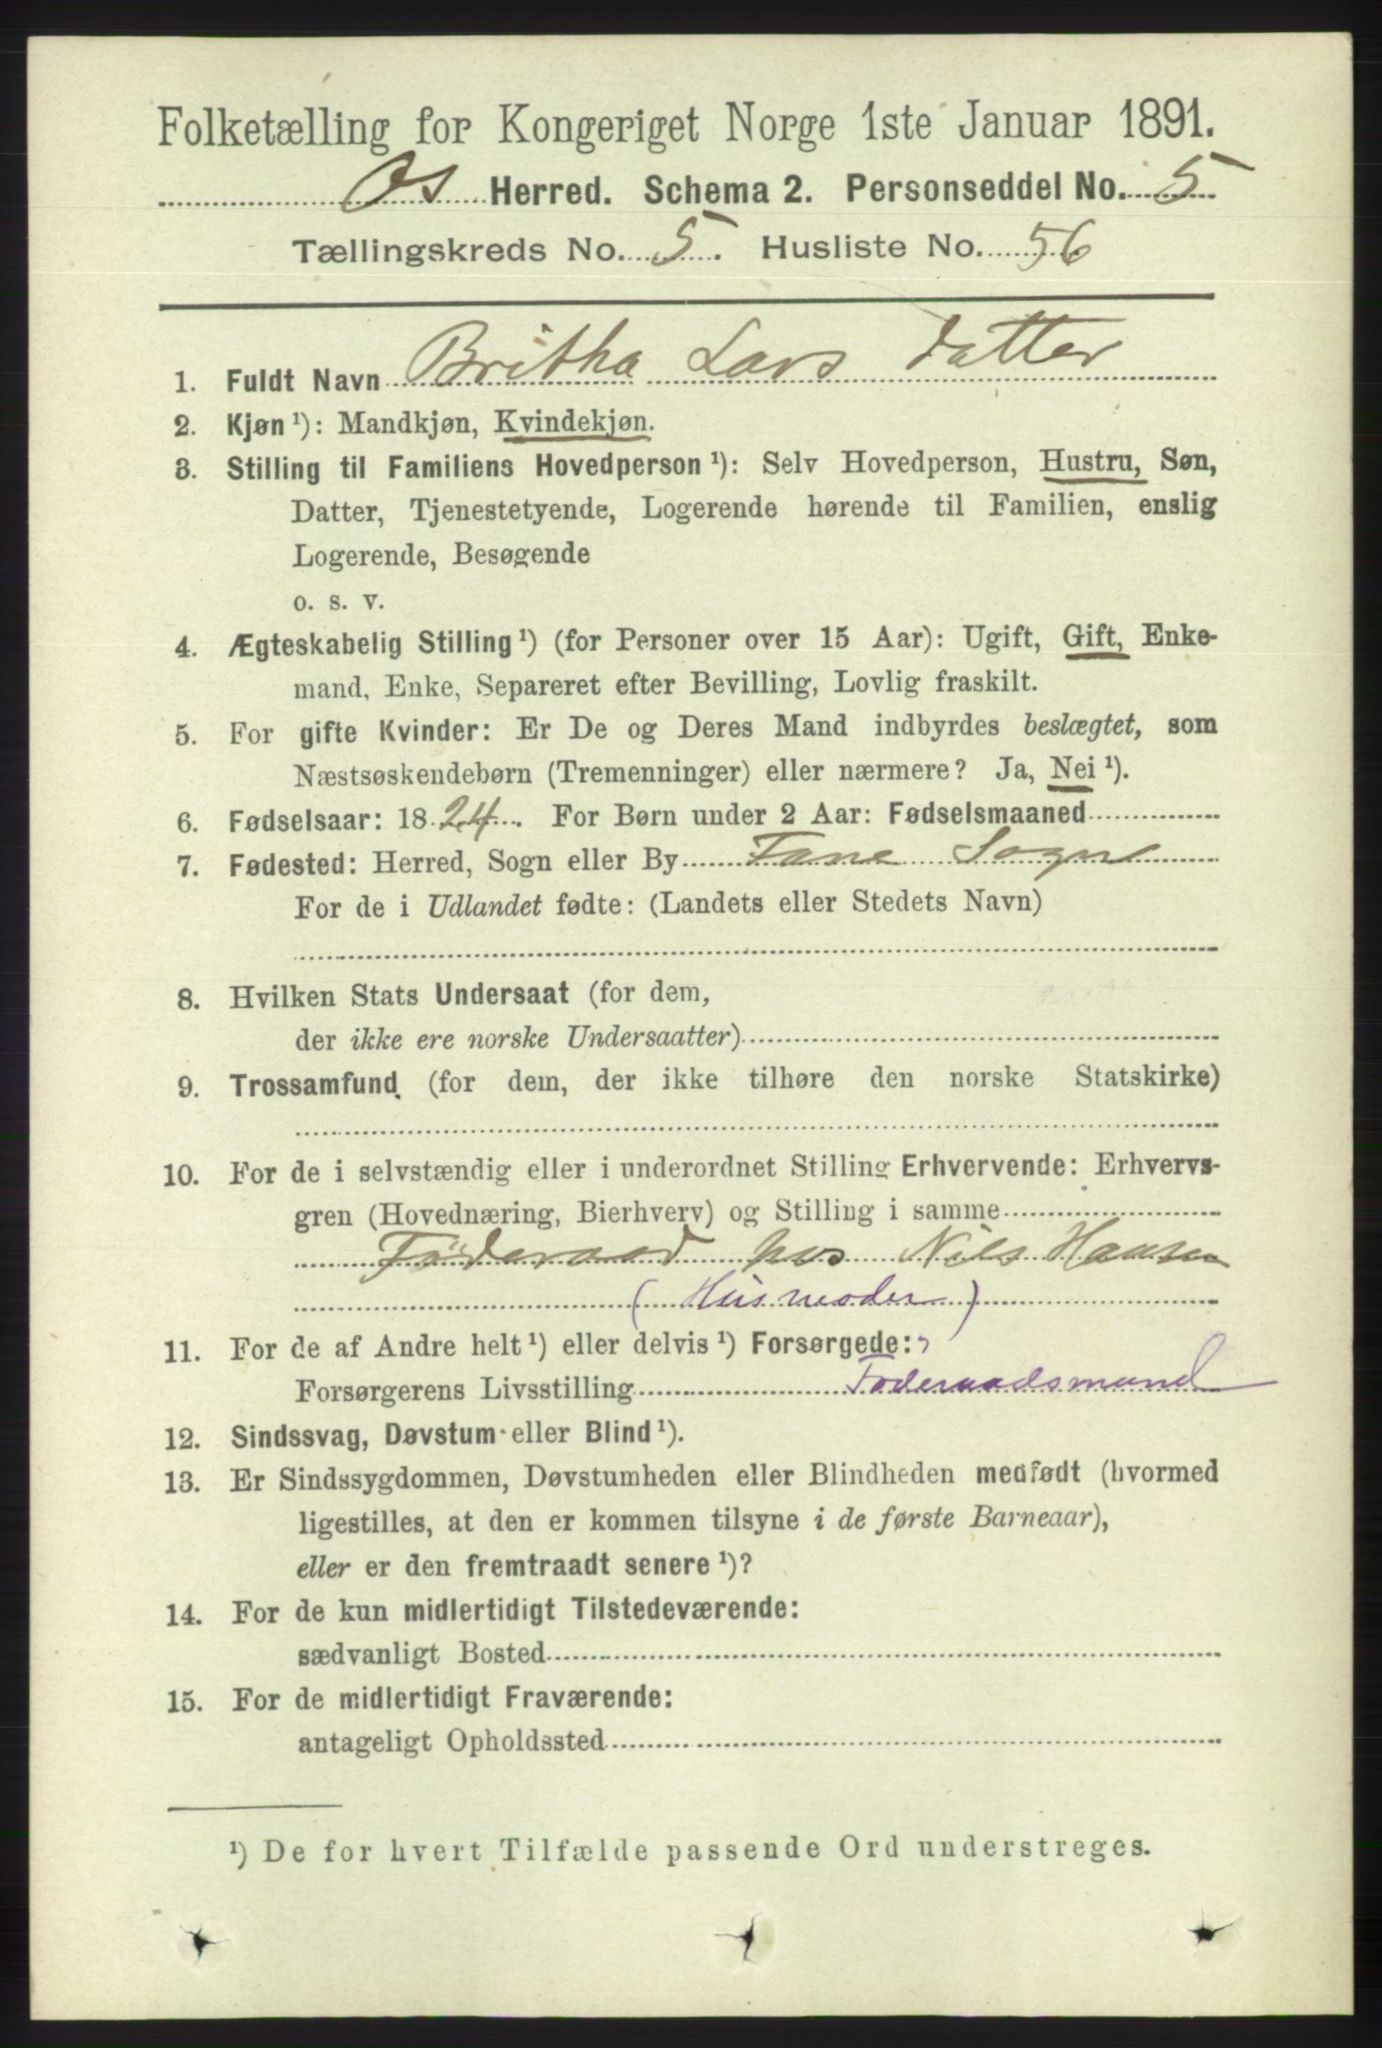 Folketælling for Kongeriget Norge 1ste Januar 1891.
Os Herred. Schema 2. Personseddel No. 5
Tællingskreds No. 5. Husliste No. 56
1. Fuldt Navn Britha Lars datter
2. Kjøn ¹): Mandkjøn, Kvindekjøn.
3. Stilling til Familiens Hovedperson ¹): Selv Hovedperson, Hustru, Søn,
Datter, Tjenestetyende, Logerende hørende til Familien, enslig
Logerende, Besøgende
o. s. v.
4. Ægteskabelig Stilling ¹) (for Personer over 15 Aar): Ugift, Gift, Enke-
mand, Enke, Separeret efter Bevilling, Lovlig fraskilt.
5. For gifte Kvinder: Er De og Deres Mand indbyrdes beslægtet, som
Næstsøskendebørn (Tremenninger) eller nærmere? Ja, Nei ¹).
6. Fødselsaar: 1824. For Børn under 2 Aar: Fødselsmaaned
7. Fødested: Herred, Sogn eller By Fane Sogn
For de i Udlandet fødte: (Landets eller Stedets Navn)
8. Hvilken Stats Undersaat (for dem,
der ikke ere norske Undersaatter)
9. Trossamfund (for dem, der ikke tilhøre den norske Statskirke)
10. For de i selvstændig eller i underordnet Stilling Erhvervende: Erhvervs-
gren (Hovednæring, Bierhverv) og Stilling i samme
Føderaad hos Nils Hansen
(Husmoder)
11. For de af Andre helt ¹) eller delvis ¹) Forsørgede:
Forsørgerens Livsstilling Føderaadsmand
12. Sindssvag, Døvstum eller Blind ¹).
13. Er Sindssygdommen, Døvstumheden eller Blindheden medfødt (hvormed
ligestilles, at den er kommen tilsyne i de første Barneaar),
eller er den fremtraadt senere ¹)?
14. For de kun midlertidigt Tilstedeværende:
sædvanligt Bosted
15. For de midlertidigt Fraværende:
antageligt Opholdssted
¹) De for hvert Tilfælde passende Ord understreges.